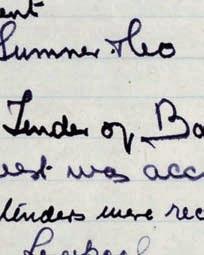 ent
Sumner Theo
Tender of Bo
uest was acc
tenders were rec